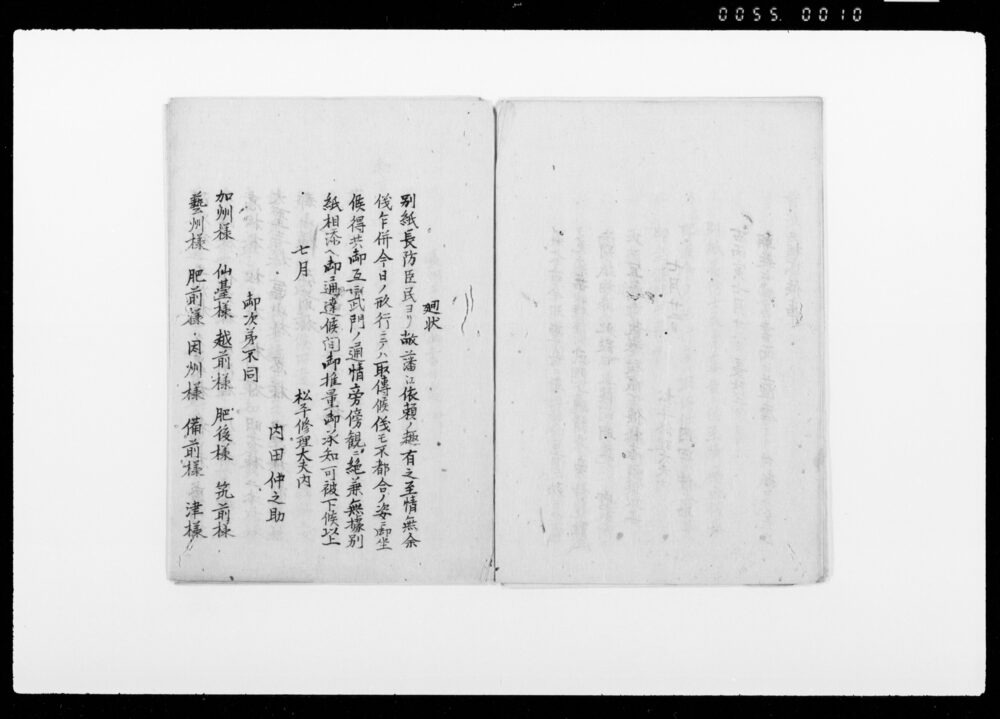 0055. 0010
廻状
別紙長防臣民ヨリ敝藩江依頼ノ趣有之至情無余
儀乍併今日ノ形行ニテハ取傳候儀モ不都合ノ姿ニ御坐
候得共御互武門ノ通情旁傍観ニ絶兼無據別
紙相添ヘ御通達候間御推量御承知可被下候以上
七月 松平修理大夫内
内田仲之助
御次第不同
加州様 仙臺様 越前様 肥後様 筑前様
藝州様 肥前様 因州様 備前様 津様